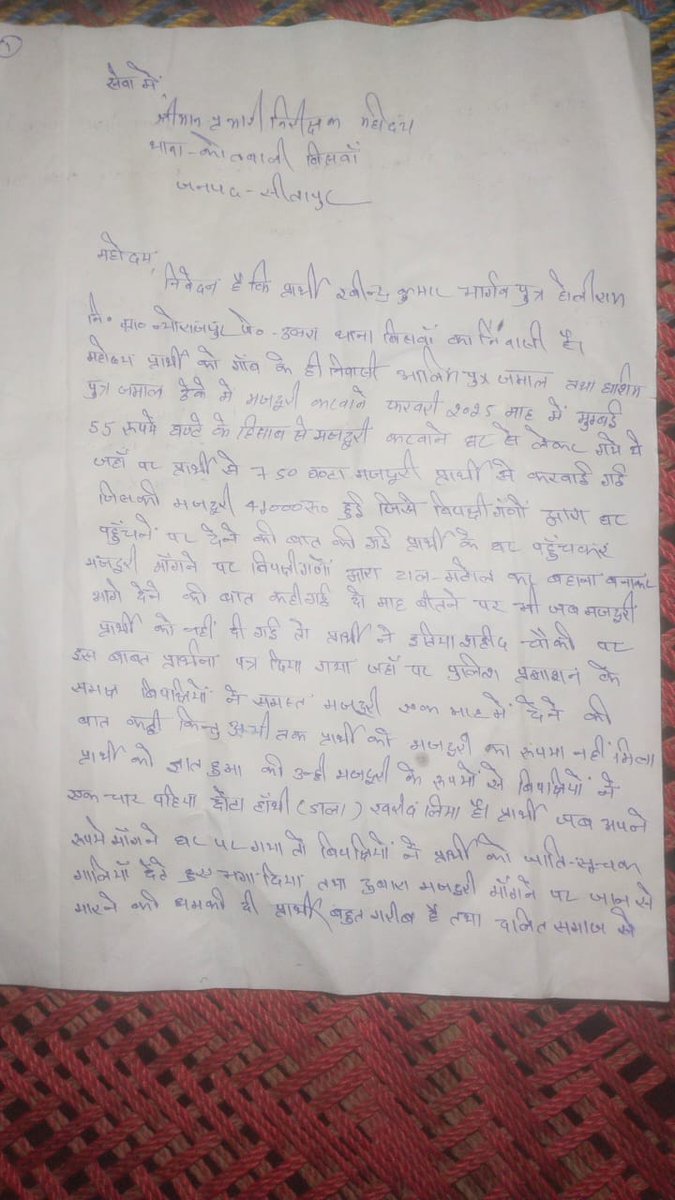 1
सेवा में,
श्रीमान प्रभारी निरीक्षक महोदय
थाना-कोतवाली बिसवाँ
जनपद-सीतापुर
महोदय,
निवेदन है कि प्रार्थी रवीन्द्र कुमार भार्गव पुत्र होलीराम
नि० ग्रा० पो० थाना बिसवाँ का निवासी है।
महोदय प्रार्थी को गाँव के ही निवासी पुत्र जमाल तथा हाशिम
पुत्र जमाल ठेके में मजदूरी करवाने फरवरी 2025 माह में मुम्बई
55 रूपये घण्टे के हिसाब से मजदूरी करवाने घर से लेकर गये थे
जहाँ पर प्रार्थी से 750 घण्टा मजदूरी प्रार्थी से करवाई गई
जिसकी मजदूरी 41000रू० हुई जिसे विपक्षीगणों द्वारा घर
पहुँचने पर देने की बात की गई प्रार्थी के घर पहुँचकर
मजदूरी माँगने पर विपक्षीगणों द्वारा टाल-मटोल कर बहाना बनाकर
आगे देने की बात कही गई दो माह बीतने पर भी जब मजदूरी
प्रार्थी को नहीं दी गई तो प्रार्थी ने शहीद चौकी पर
इस बाबत प्रार्थना पत्र दिया गया जहाँ पर पुलिस प्रशाशन के
समक्ष विपक्षियों ने समस्त मजदूरी एक माह में देने की
बात कही किन्तु अभी तक प्रार्थी को मजदूरी का रूपया नहीं मिला
प्रार्थी को ज्ञात हुआ की उन्ही मजदूरी के रूपयों से विपक्षियों ने
एक चार पहिया छोटा हाँथी (डाला) खरीद लिया है। प्रार्थी जब अपने
रूपये माँगने घर पर गया तो विपक्षियों ने प्रार्थी को जाति-सूचक
गालियाँ देते हुए भगा दिया तथा दुबारा मजदूरी माँगने पर जान से
मारने की धमकी दी प्रार्थी बहुत गरीब है तथा दलित समाज से